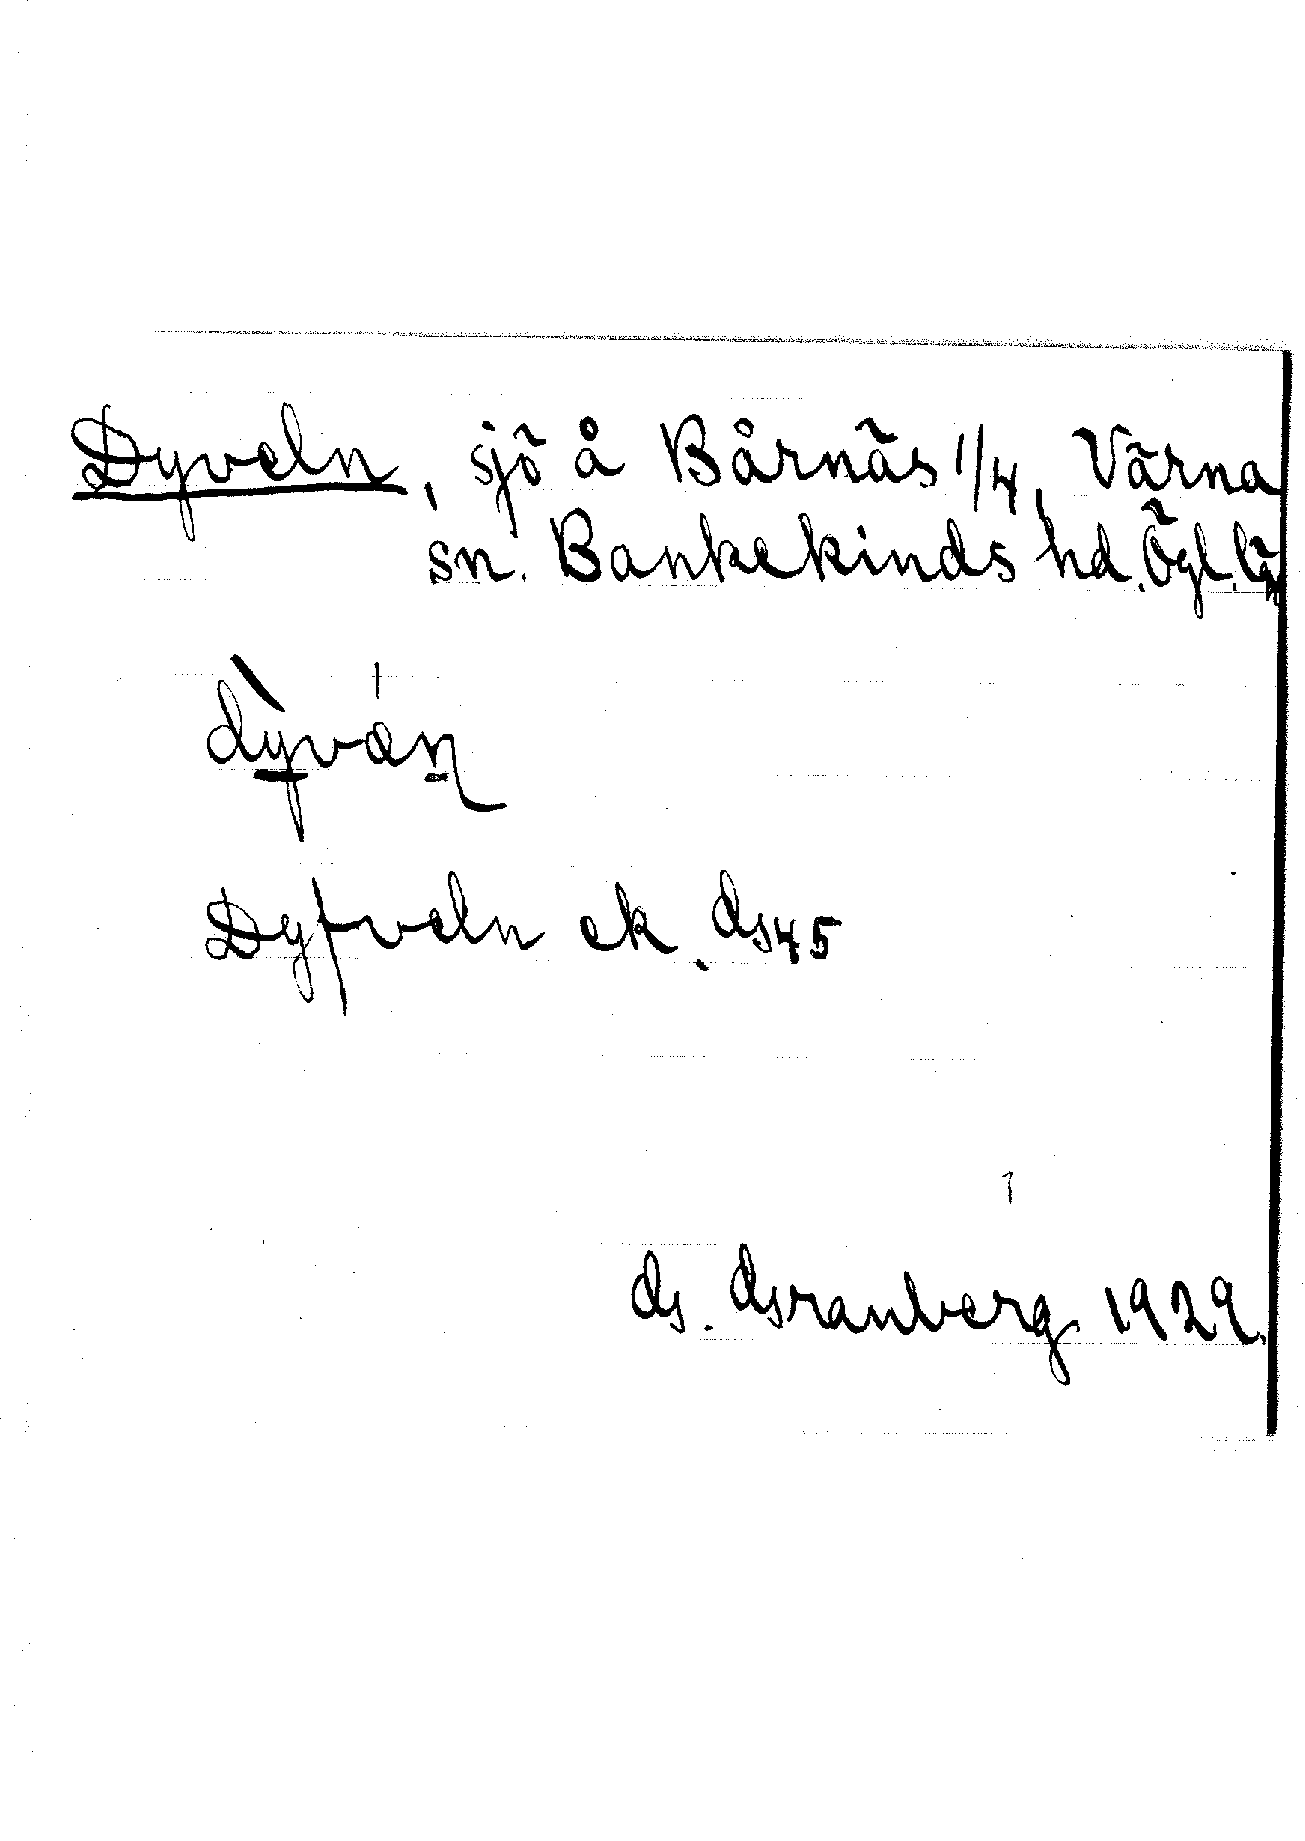 Dyveln, sjö å Bårnäs 1/4, Värna
sn. Bankekinds hd. Ögl. län
dỳván
Dyfveln ek. G45
G. Granberg 1929.